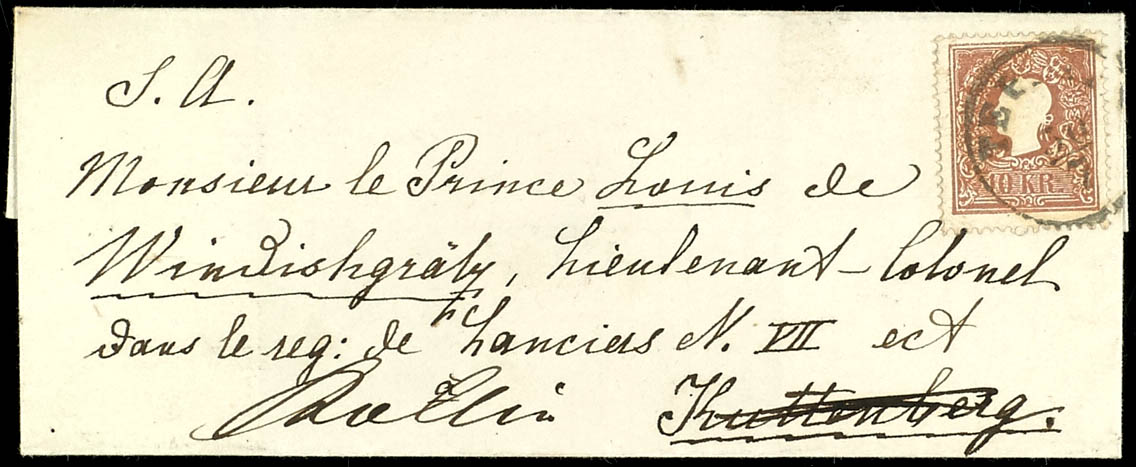 S. A.
Monsieur le Prince Louis de
Windishgrätz, Lieutenant-Colonel
dans le reg: de Lanciers N. VII ect
Kuttenberg.
10 KR